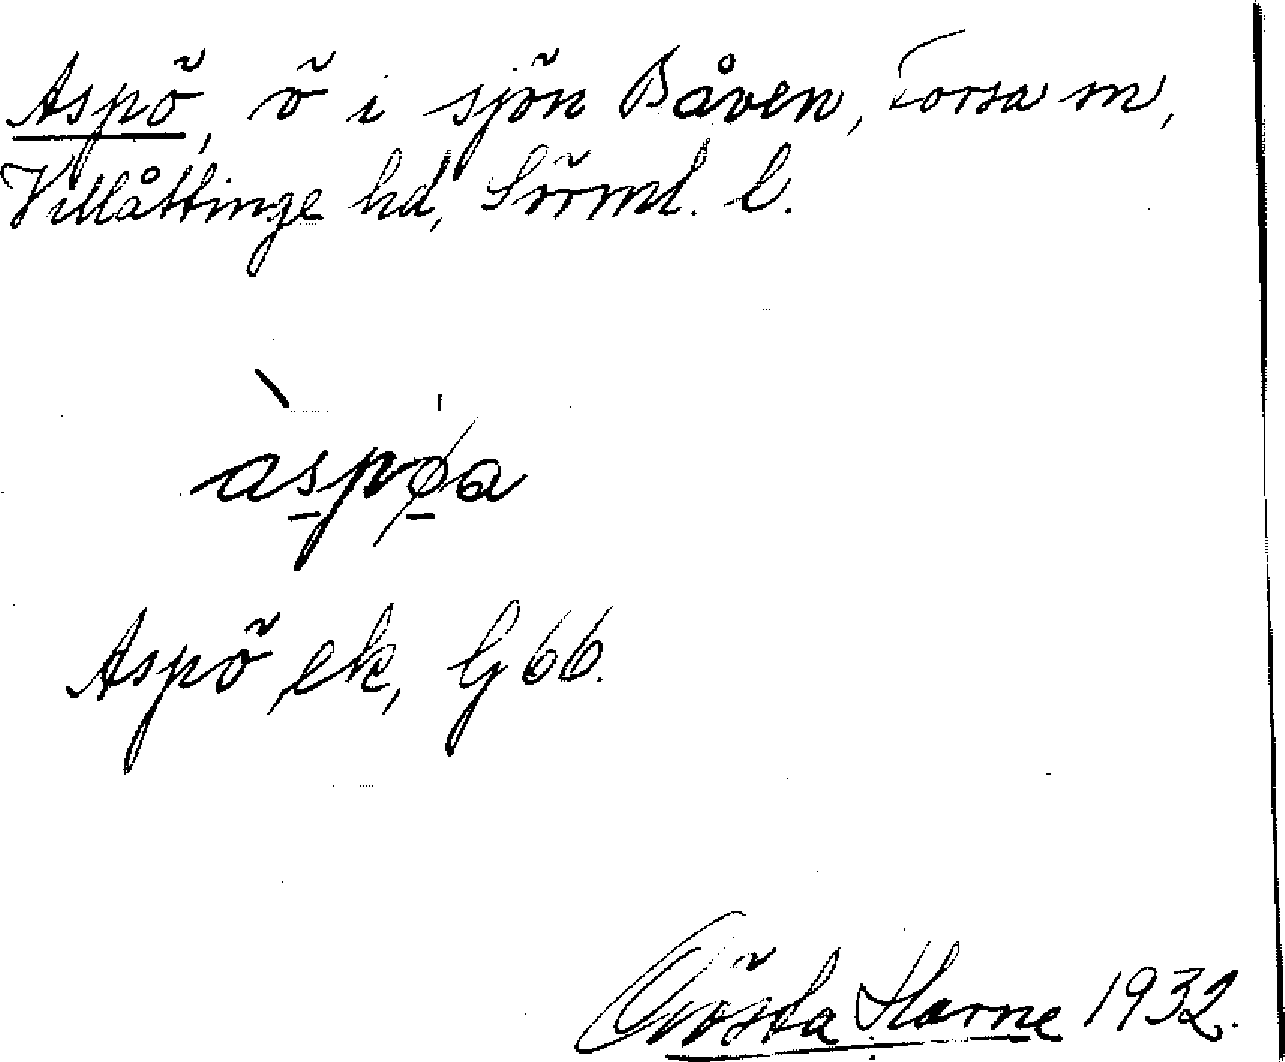 Aspö, ö i sjön Båven, Torsa sn,
Villåttinge hd, Sörml. l.
àspø̀a
Aspö ek, G 66.
Gösta Harne 1932.